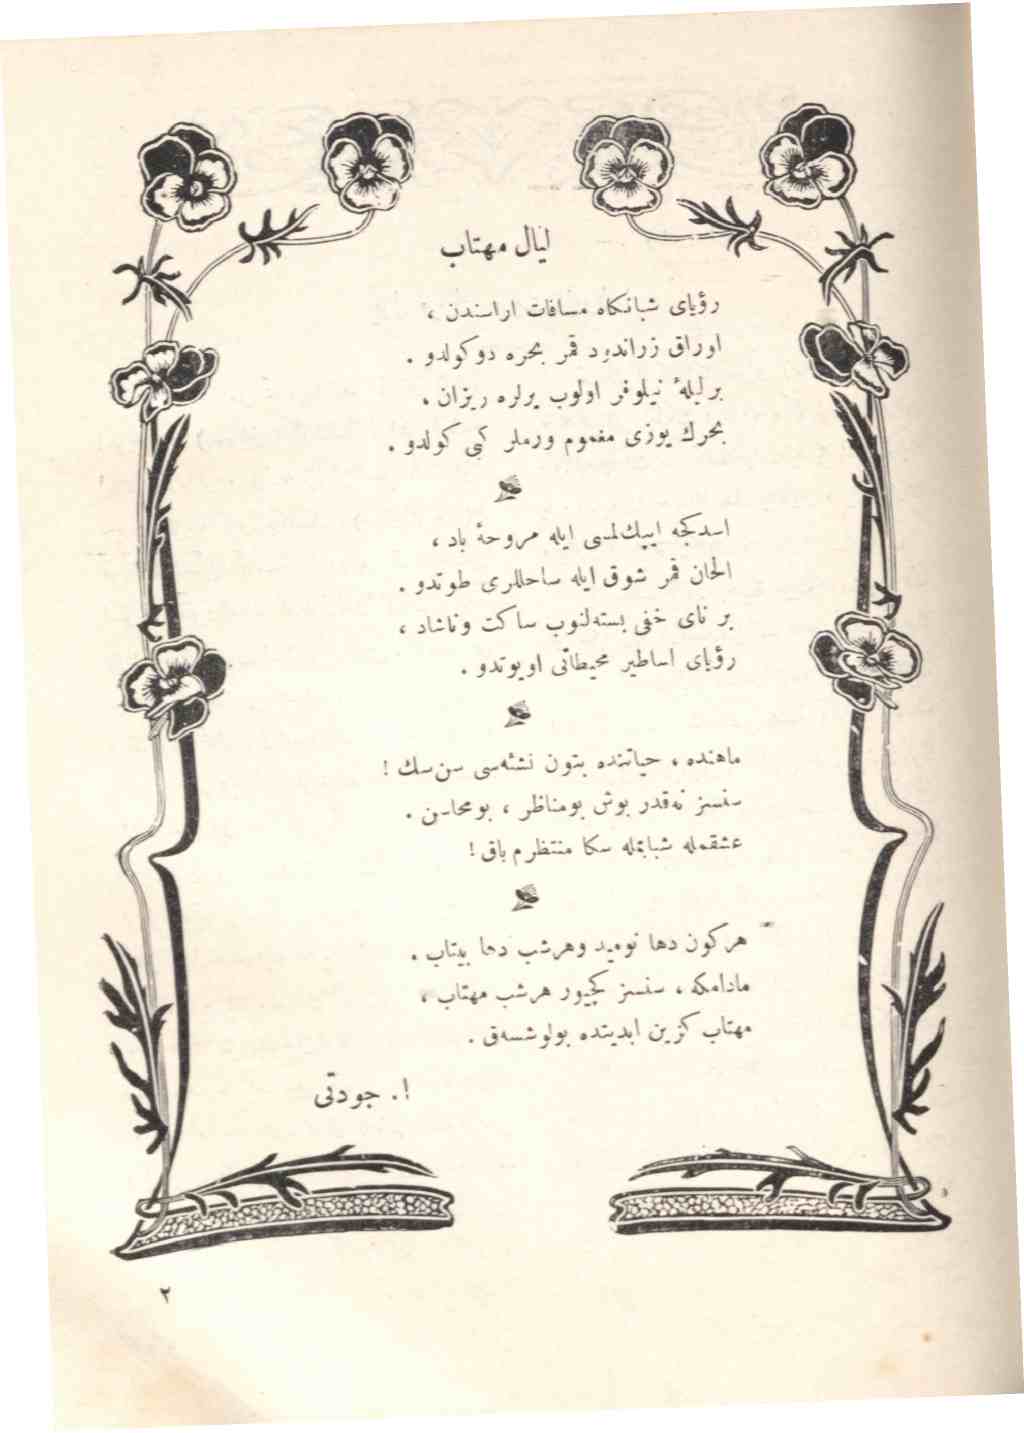 ليال مهتاب
رؤياى شبانگاه مسافات اراسندن ،
اوراق زراندود قمر بحره دوكولدو .
بر ليلۀ نيلوفر اولوب يرلره ريزان ،
بحرك يوزى مغموم ورملر كبى كولدو .
اسدكجه ايپك لمسى ايله مروحۀ باد ،
الحان قمر شوق ايله ساحللرى طوتدو .
بر ناى خفى بسته‌لنوب ساكت وناشاد ،
رؤياى اساطير محيطاتى اويوتدو .
ماهنده ، حياتنده بتون نشئه‌سى سن سك !
سنسز نه‌قدر بوش بومناظر ، بومحاسن .
عشقمله شبابمله سكا منتظرم باق !
هركون دها نوميد وهرشب دها بيتاب .
مادامكه ، سنسز كچيور هرشب مهتاب ،
مهتاب كزين ابديتده بولوشسه‌ق .
ا . جودتى
٢